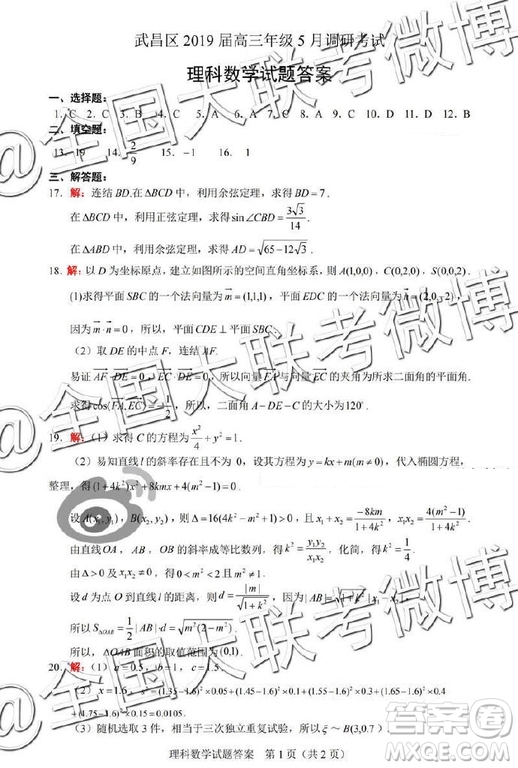 武昌区 2019 届高三年级 5 月调研考试
理科数学试题答案
一、选择题:
1. C 2. C 3. C 8. B 9. B 10. D 11. D 12. B
二、填空题:
13. 19 14. 2/9 15. -1 16. 1
三、解答题:
17. 解: 连结 BD. 在 ΔBCD 中, 利用余弦定理, 求得 BD = 7 .
在 ΔBCD 中, 利用正弦定理, 求得 sin∠CBD = 3√3/14 .
在 ΔABD 中, 利用余弦定理, 求得 AD = √(65-12√3) .
18. 解: 以 D 为坐标原点, 建立如图所示的空间直角坐标系, 则 A(1,0,0) , C(0,2,0) , S(0,0,2) .
(1)求得平面 SBC 的一个法向量为 m = (1,1,1) , 平面 EDC 的一个法向量为 n = (2,0,-2) ,
因为 m·n = 0 , 所以, 平面 CDE ⊥ 平面 SBC .
(2) 取 DE 的中点 F , 连结 AF.
易证 AF·DE = 0 , EC·DE = 0 , 所以向量 FA 与向量 EC 的夹角为所求二面角的平面角.
求得 cos(FA, EC) = -1/2 , 所以, 二面角 A-DE-C 的大小为 120° .
19. 解: (1) 求得 C 的方程为 x²/4 + y² = 1.
(2) 易知直线 l 的斜率存在且不为 0 , 设其方程为 y = kx + m(m ≠ 0) , 代入椭圆方程,
整理, 得 (1+4k²)x² + 8kmx + 4(m²-1) = 0 .
设 A(x₁, y₁) , B(x₂, y₂) , 则 Δ = 16(4k² - m² + 1) > 0 , 且 x₁ + x₂ = -8km/(1+4k²) , x₁x₂ = 4(m²-1)/(1+4k²) .
由直线 OA , AB , OB 的斜率成等比数列, 得 k² = y₁y₂/x₁x₂ , 化简, 得 k² = 1/4 .
由 Δ > 0 及 x₁x₂ ≠ 0 , 得 0 < m² < 2 且 m² ≠ 1 .
设 d 为点 O 到直线 l 的距离, 则 d = |m|/√(1+k²) , 因为 |AB| = √(1+k²)·|x₁-x₂| ,
所以 S△OAB = 1/2|AB|·d = √(m²(2-m²)) .
所以 ΔOAB 面积的取值范围为 (0,1) .
20. 解: (1) a = 0.5 , b = 1 , c = 1.5 .
(2) x = 1.6 , s² = (1.35-1.6)²×0.05 + (1.45-1.6)²×0.2 + (1.55-1.6)²×0.3 + (1.65-1.6)²×0.2
+ (4.75-1.6)²×0.15 = 0.0105.
(3) 购买 3 件, 相当于三次独立重复试验, 所以 ξ ~ B(3, 0.7 ) .
理科数学试题答案 第 1 页 (共 2 页)
@全国大联考微博
@全国大联考微博
答案圈